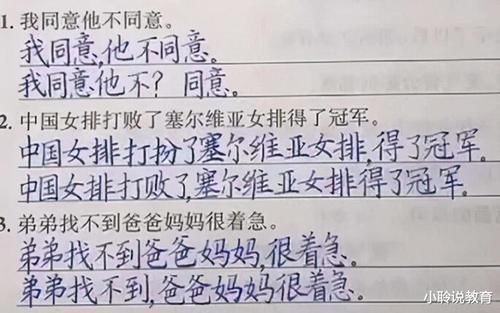 1. 我同意他不同意。
我同意,他不同意。
我同意他不？同意。
2. 中国女排打败了塞尔维亚女排得了冠军。
中国女排打扮了塞尔维亚女排,得了冠军。
中国女排打败了,塞尔维亚女排得了冠军。
3. 弟弟找不到爸爸妈妈很着急。
弟弟找不到爸爸妈妈,很着急。
弟弟找不到,爸爸妈妈很着急。
小聆说教育